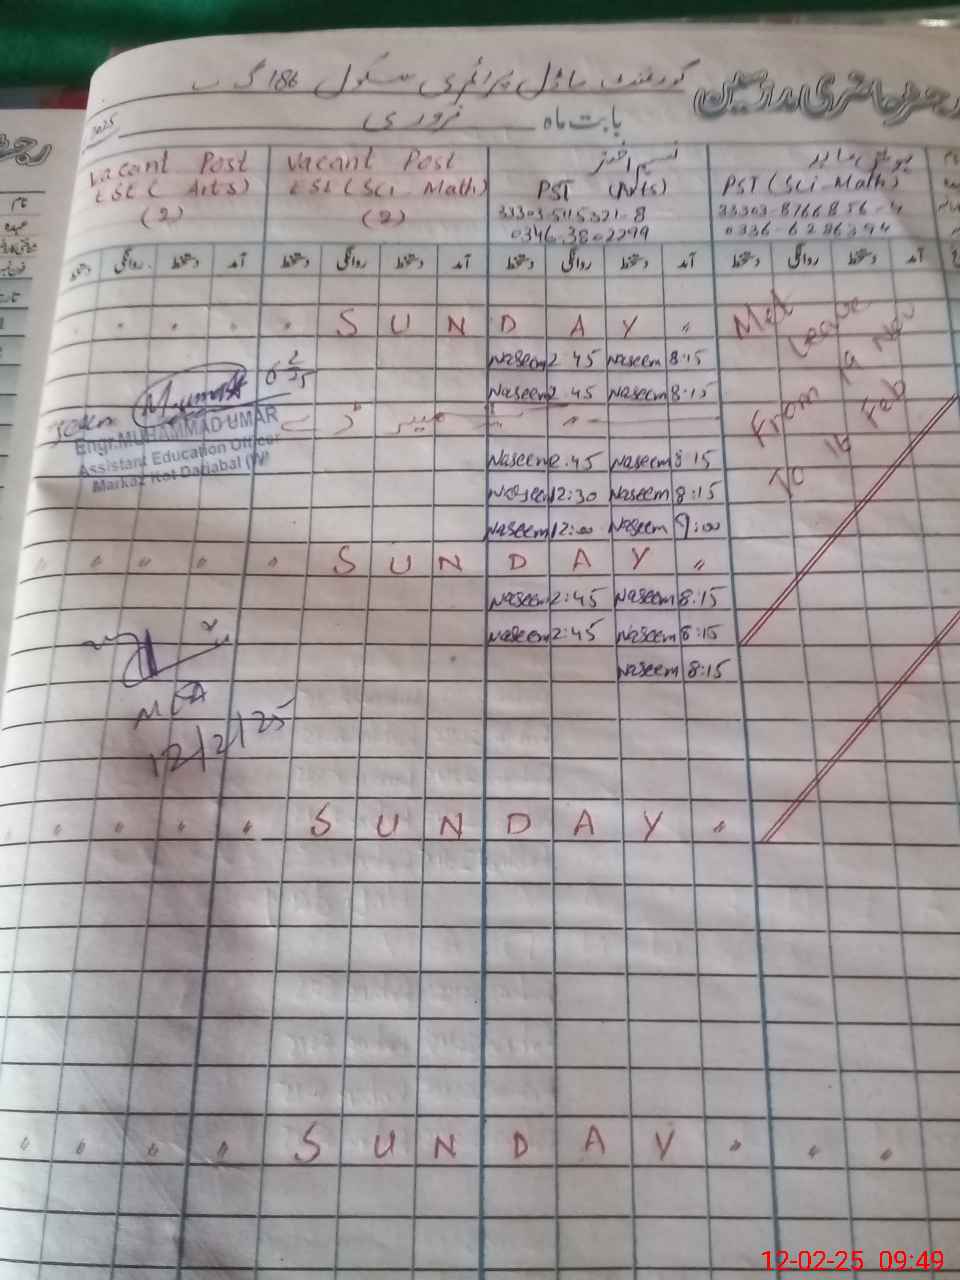 رجسٹر حاضری مدرسین گورنمنٹ ماڈل پرائمری سکول 186 گ ب
بابت ماہ فروری
2025
نسیم اختر
PST (Arts)
33303-5115321-8
0346-3802299
PST (Sci-Math)
33303-8766856-4
0336-6286394
Vacant Post
EST (Sci-Math)
(2)
Vacant Post
EST (Arts)
(2)
آمد دستخط روانگی دستخط آمد دستخط روانگی دستخط آمد دستخط روانگی دستخط آمد دستخط روانگی دستخط
" " " " " S U N D A Y "
Naseem 2:45 Naseem 8:15
Naseem 2:45 Naseem 8:15
Naseem 2:45 Naseem 8:15
Naseem 12:30 Naseem 8:15
Naseem 12:00 Naseem 9:00
" " " " " S U N D A Y "
Naseem 2:45 Naseem 8:15
Naseem 2:45 Naseem 8:15
Naseem 8:15
Leave
From 19 Nov
To 16 Feb
Engr.MUHAMMAD UMAR
Assistant Education Officer
Markaz Kot Dariabal (W)
MEA
12/2/25
" " " " S U N D A Y "
" " " " S U N D A Y " " "
12-02-25 09:49